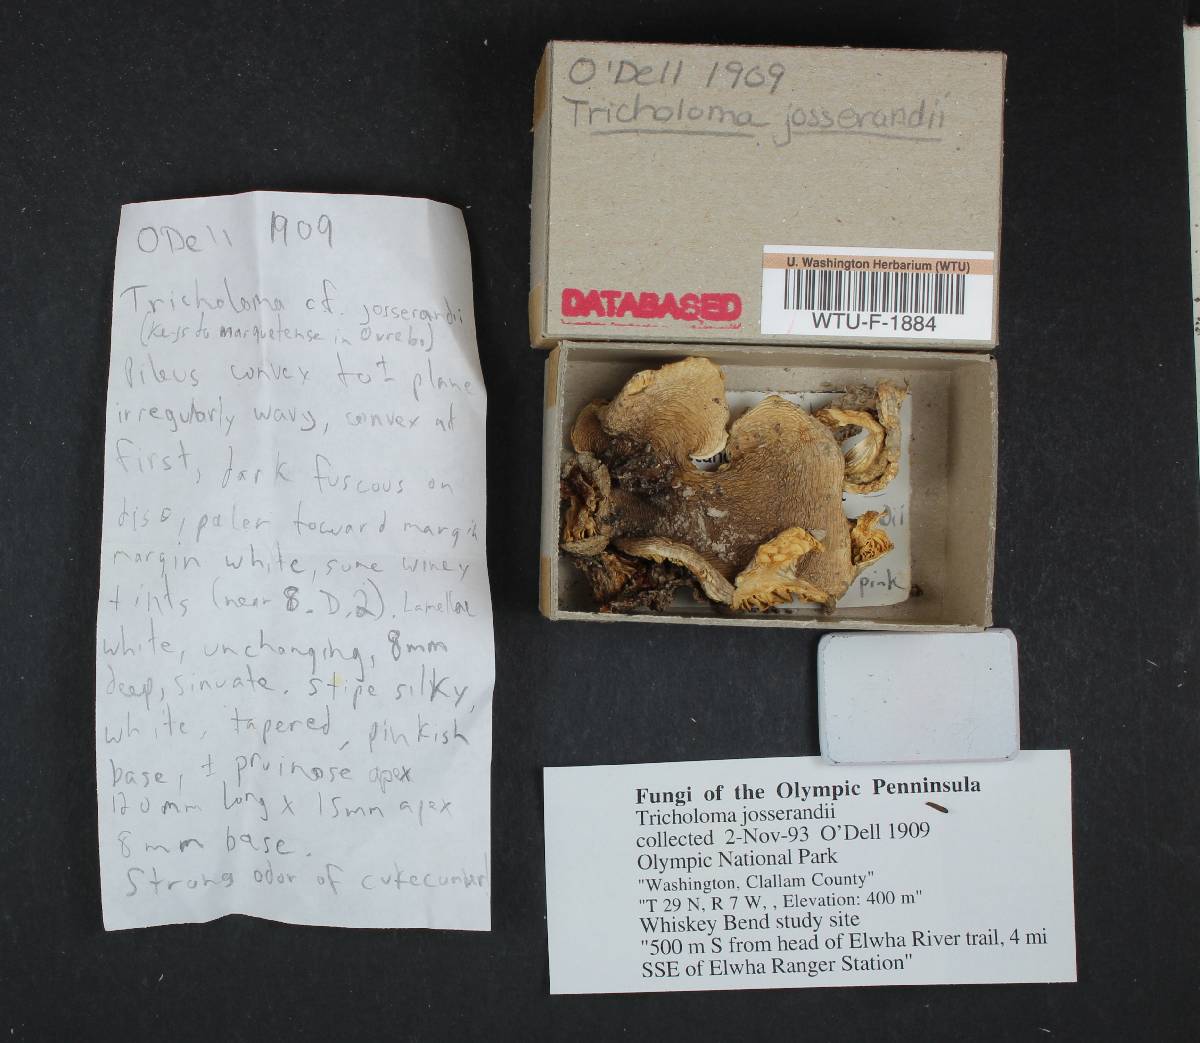 O'Dell 1909
Tricholoma josserandii
DATABASED
U. Washington Herbarium (WTU)
WTU-F-1884
dii
pink
ODell 1909
Tricholoma cf. josserandii
(keys to marquetense in Ovrebo)
Pileus convex to ± plane
irregularly wavy, convex at
first, dark fuscous on
disc, paler toward margin
margin white, some winey
tints (near 8.D.2). Lamellae
white, unchanging, 8mm
deep, sinuate. Stipe silky,
white, tapered, pinkish
base, ± pruinose apex
120mm long x 15mm apex
8mm base.
Strong odor of cukecumber
Fungi of the Olympic Penninsula
Tricholoma josserandii
collected 2-Nov-93 O'Dell 1909
Olympic National Park
"Washington, Clallam County"
"T 29 N, R 7 W, , Elevation: 400 m"
Whiskey Bend study site
"500 m S from head of Elwha River trail, 4 mi
SSE of Elwha Ranger Station"